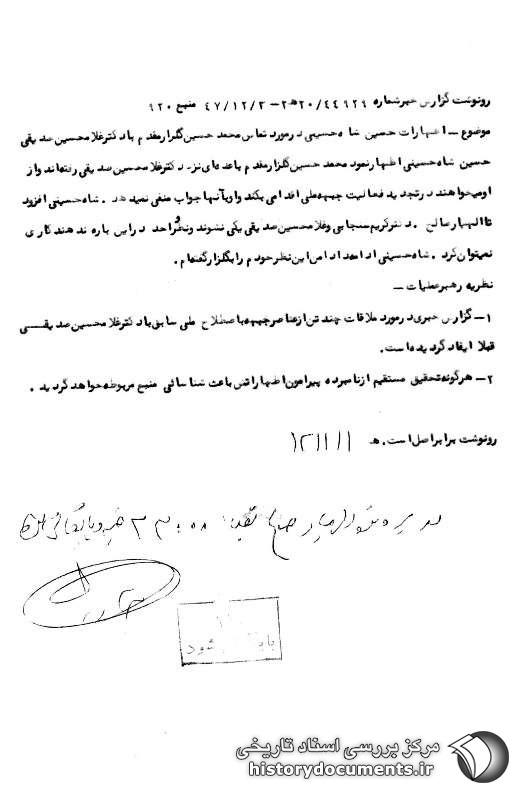 رونوشت گزارش خبر شماره ۲۰/۴۴۹۲۹ه‍ ۲ – ۴۷/۱۲/۳ منبع ۹۲۰
موضوع – اظهارات حسین شاه حسینی درمورد تماس محمد حسین گلزارمقدم با دکتر غلامحسین صدیقی
حسین شاه حسینی اظهارنمود محمد حسین گلزار مقدم با عده‌ای نزد دکتر غلامحسین صدیقی رفته‌اند و از
او میخواهند در تجدید فعالیت جبهه ملی اقدامی بکند و او بآنها جواب منفی نمیدهد . شاه حسینی افزود
تا اللهیار صالح . دکتر کریم سنجابی و غلامحسین صدیقی یکی نشوند و نظر واحد در این باره ندهند کاری
نمیتوان کرد . شاه حسینی ادامه داد من این نظر خودم را بگلزار گفته‌ام .
نظریه رهبر عملیات –
۱– گزارش خبری درمورد ملاقات چند تن از عناصر جبهه باصطلاح ملی سابق با دکتر غلامحسین صدیقی
قبلا ایفاد گردیده است .
۲– هرگونه تحقیق مستقیم از نامبرده پیرامون اظهاراتش باعث شناسائی منبع مربوطه خواهد گردید .
رونوشت برابر اصل است . ه‍ ۱۲/۱۱
شود
مرکز بررسی اسناد تاریخی
historydocuments.ir